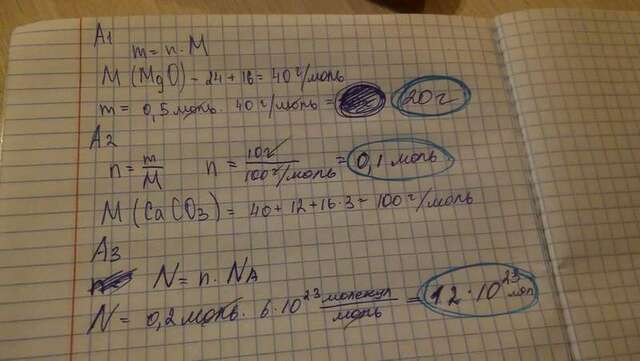 A1
m = n · M
M (MgO) - 24 + 16 = 40 г/моль
m = 0,5 моль · 40 г/моль = 20 г
A2
n = m/M n = 10г/100 г/моль = 0,1 моль
M (CaCO3) = 40 + 12 + 16 · 3 = 100 г/моль
A3
N = n · NA
N = 0,2 моль · 6 · 10^23 молекул/моль = 1,2 · 10^23 мол